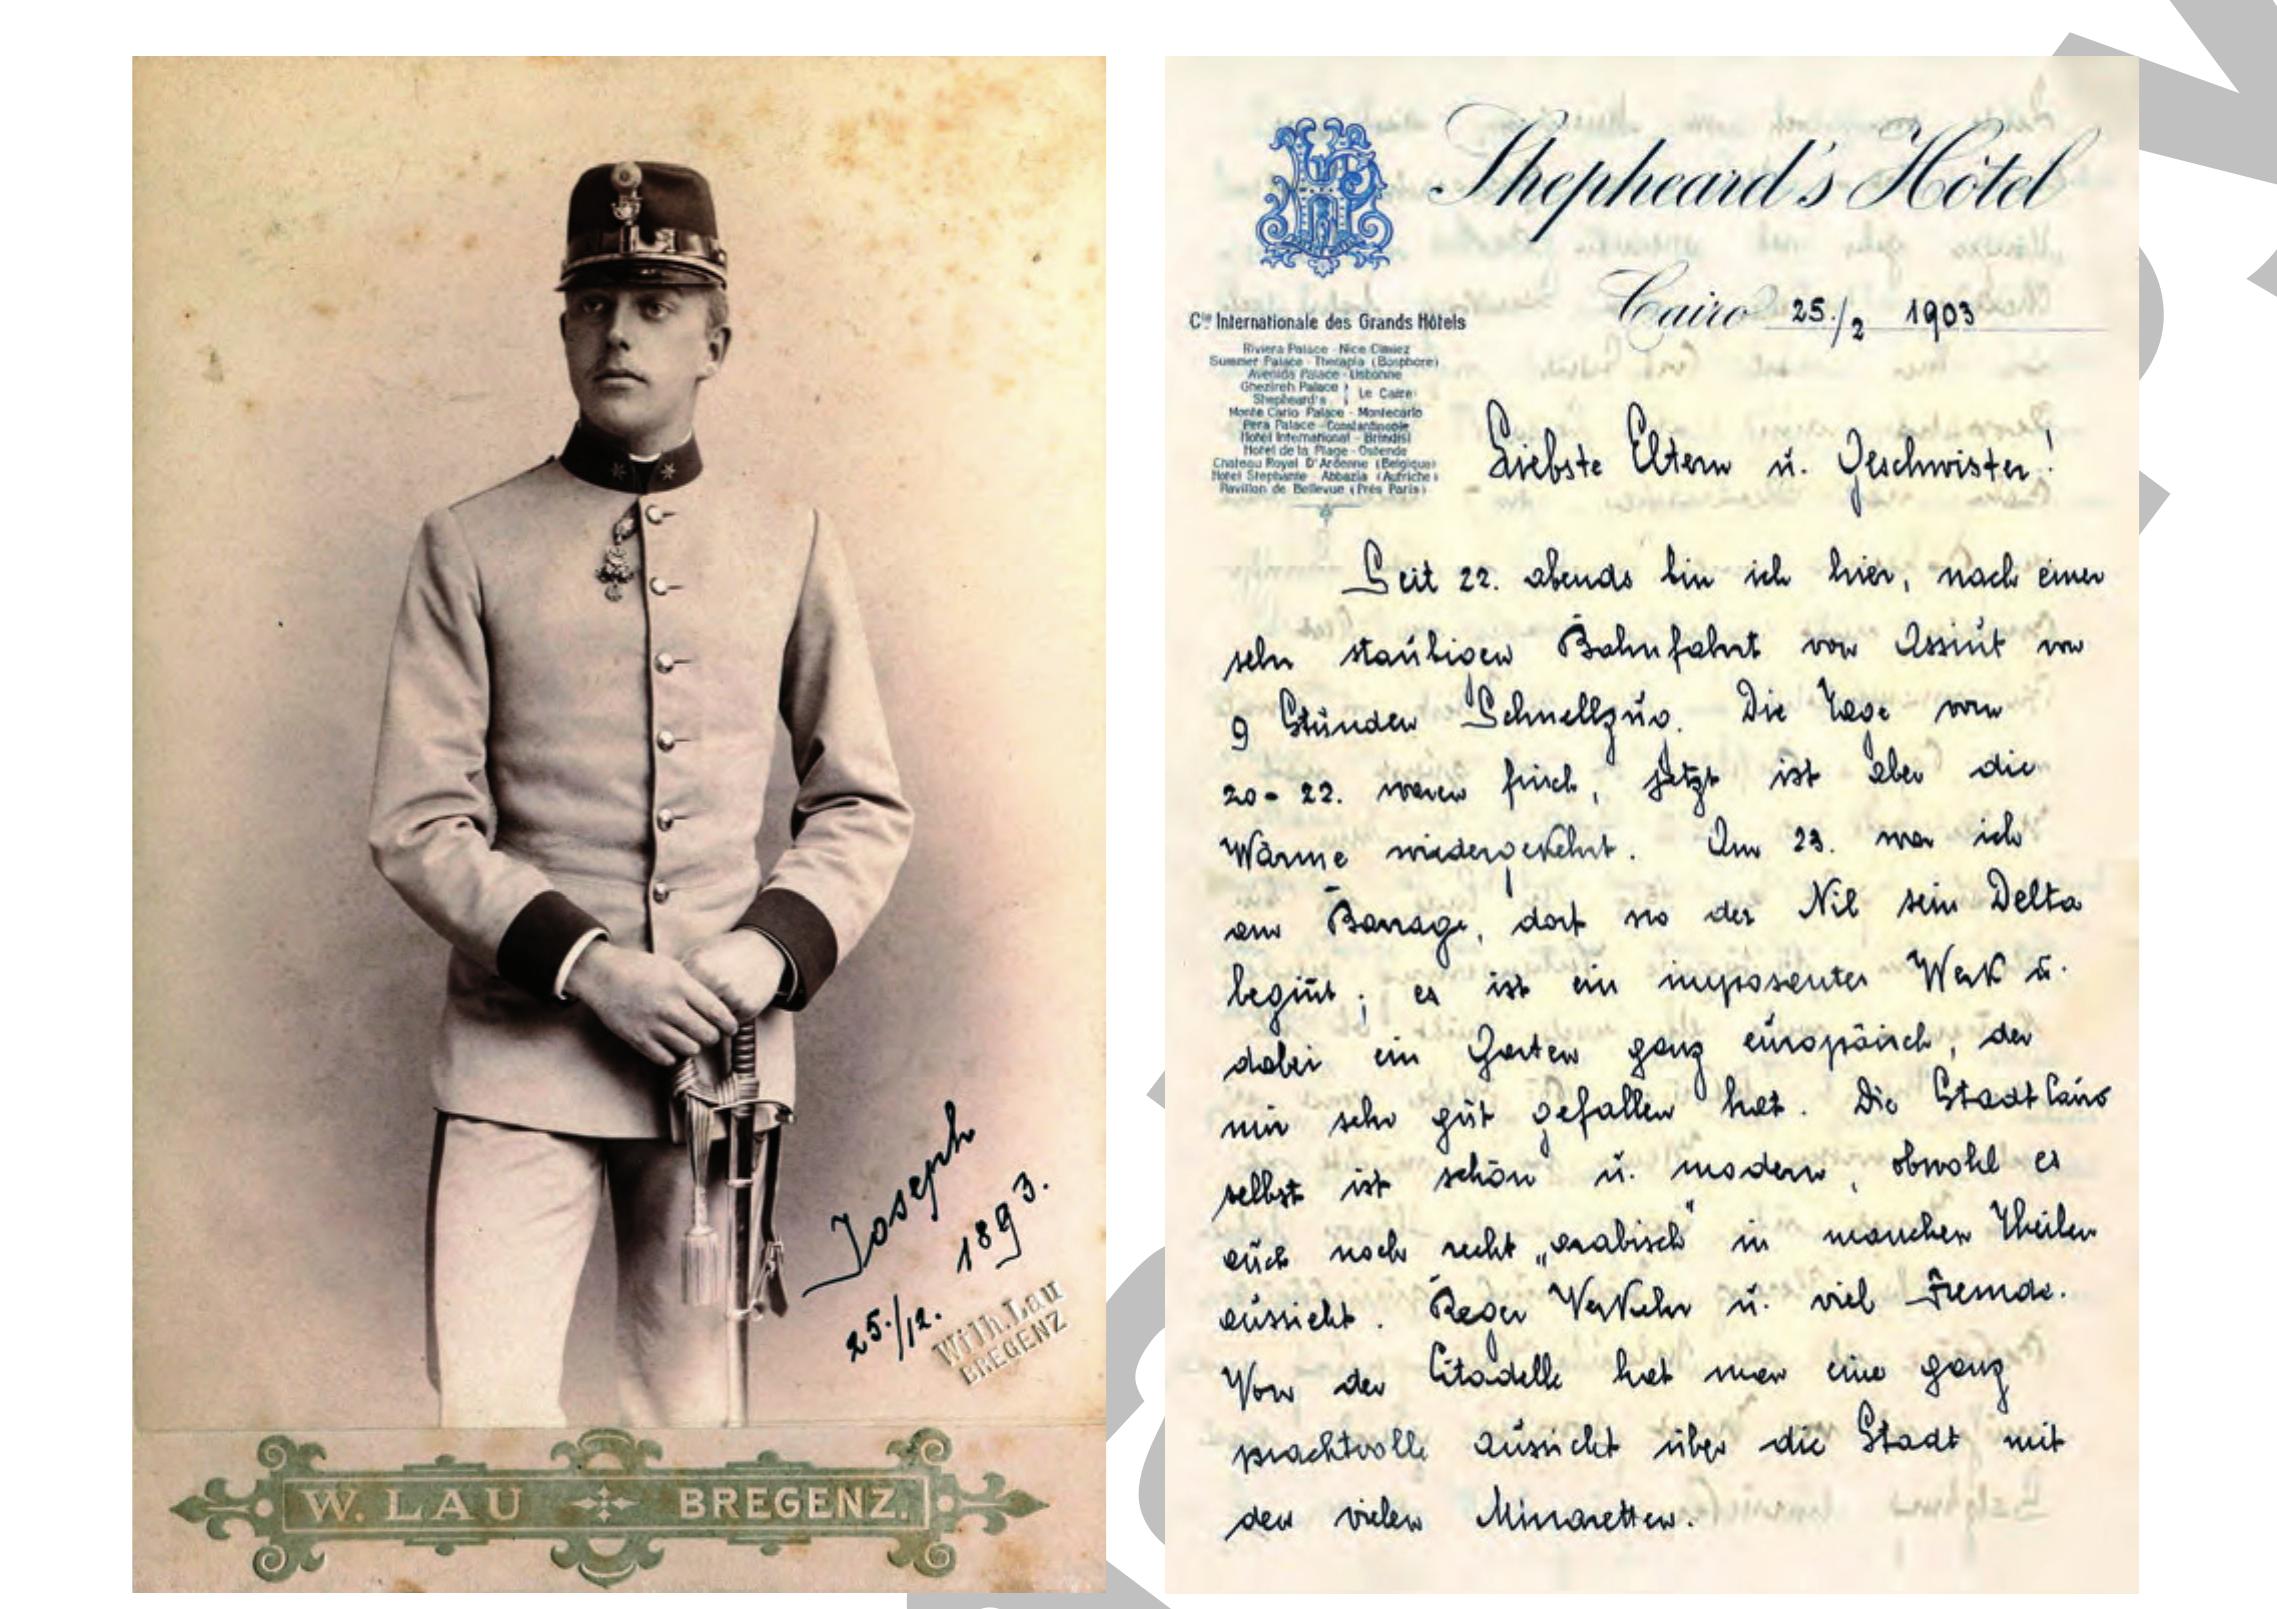 Joseph
25./12. 1893.
Wilh. Lau
BREGENZ
W. LAU BREGENZ.
Shepheard's Hôtel
Cairo 25./2 1903
Cie Internationale des Grands Hôtels
Riviera Palace - Nice Cimiez
Summer Palace - Therapia (Bosphore)
Avenida Palace - Lisbonne
Ghezireh Palace
Shepheard's
Le Caire
Monte Carlo Palace - Montecarlo
Pera Palace - Constantinople
Hotel International - Brindisi
Hotel de la Plage - Ostende
Chateau Royal D'Ardenne (Belgique)
Hotel Stephanie - Abbazia (Autriche)
Pavillon de Bellevue (Prés Paris)
Liebste Eltern u. Geschwister!
Seit 22. abends bin ich hier, nach einer
sehr staubigen Bahnfahrt von Assiut von
9 Stunden Schnellzug. Die Tage vom
20-22. waren frisch, jetzt ist aber die
Wärme wiedergekehrt. Am 23. war ich
am Barrage, dort wo der Nil sein Delta
begin̄t; es ist ein imposantes Werk u.
dabei ein Garten ganz europäisch, der
mir sehr gut gefallen hat. Die Stadt Cairo
selbst ist schön u. modern, obwohl es
auch noch recht „arabisch" in manchen Theilen
aussieht. Reger Verkehr u. viel Fremde.
Von der Citadelle hat man eine ganz
prachtvolle Aussicht über die Stadt mit
den vielen Minaretten.